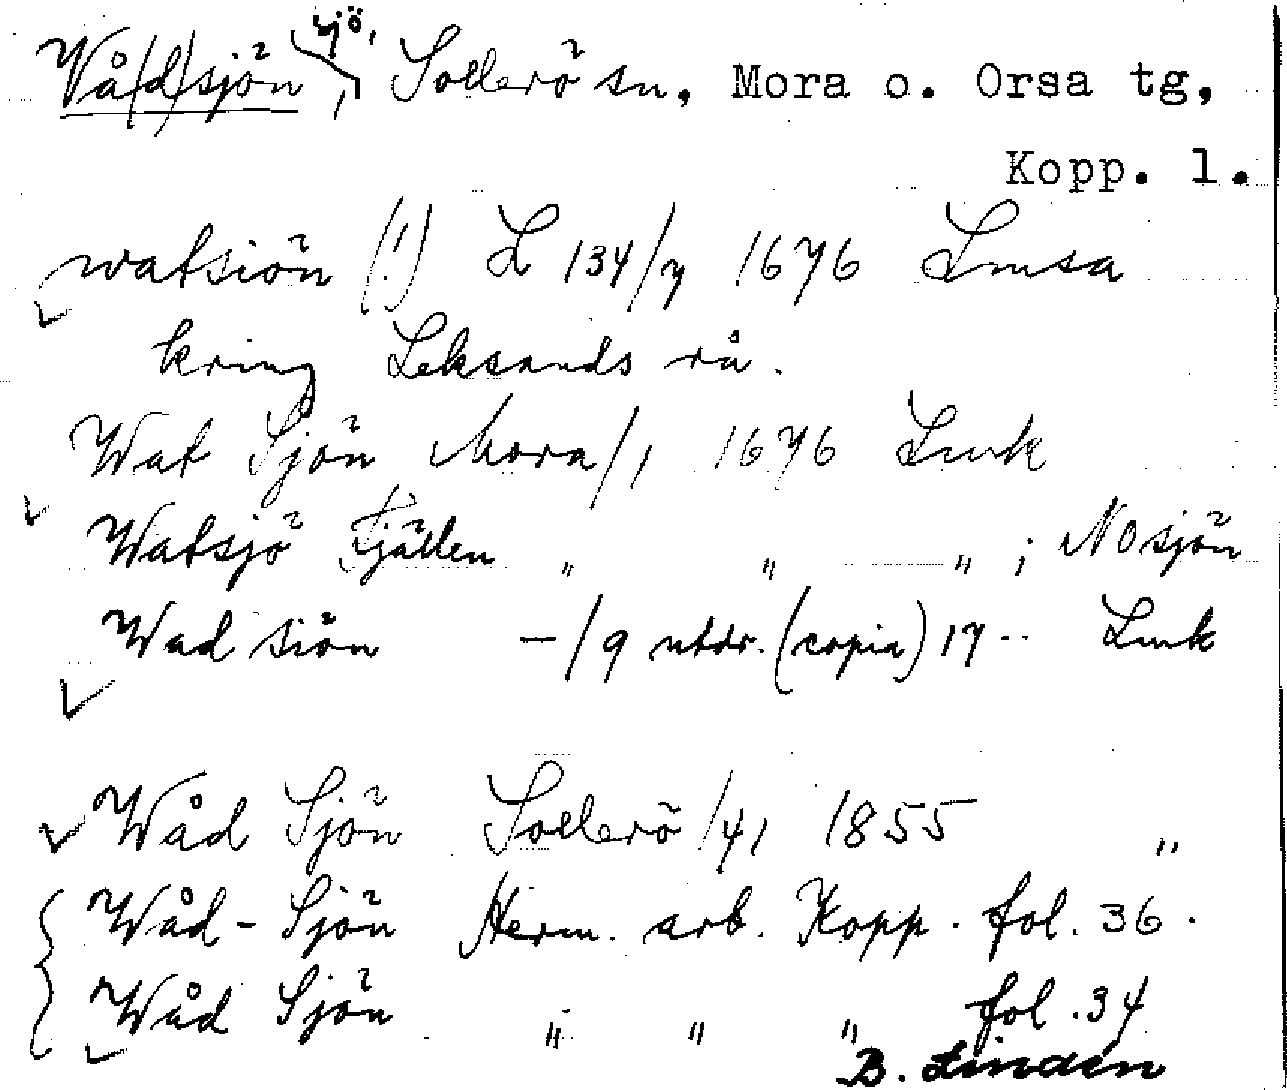 Vå(d)sjön, sjö, Sollerö sn, Mora o. Orsa tg,
Kopp. l.
watsiön (!) L 134/7 1676 Lmsa
kring Leksands rå.
Wat Sjön Mora/1 1676 Lmk
Watsjö tjällen " " " ; NOsjön
Wad siön –/9 utdr. (copia) 17-- Lmk
Wåd Sjön Sollerö/41 1855 "
Wåd-Sjön Herm. arb. Kopp. fol. 36.
Wåd Sjön " " " fol. 34
B. Linden